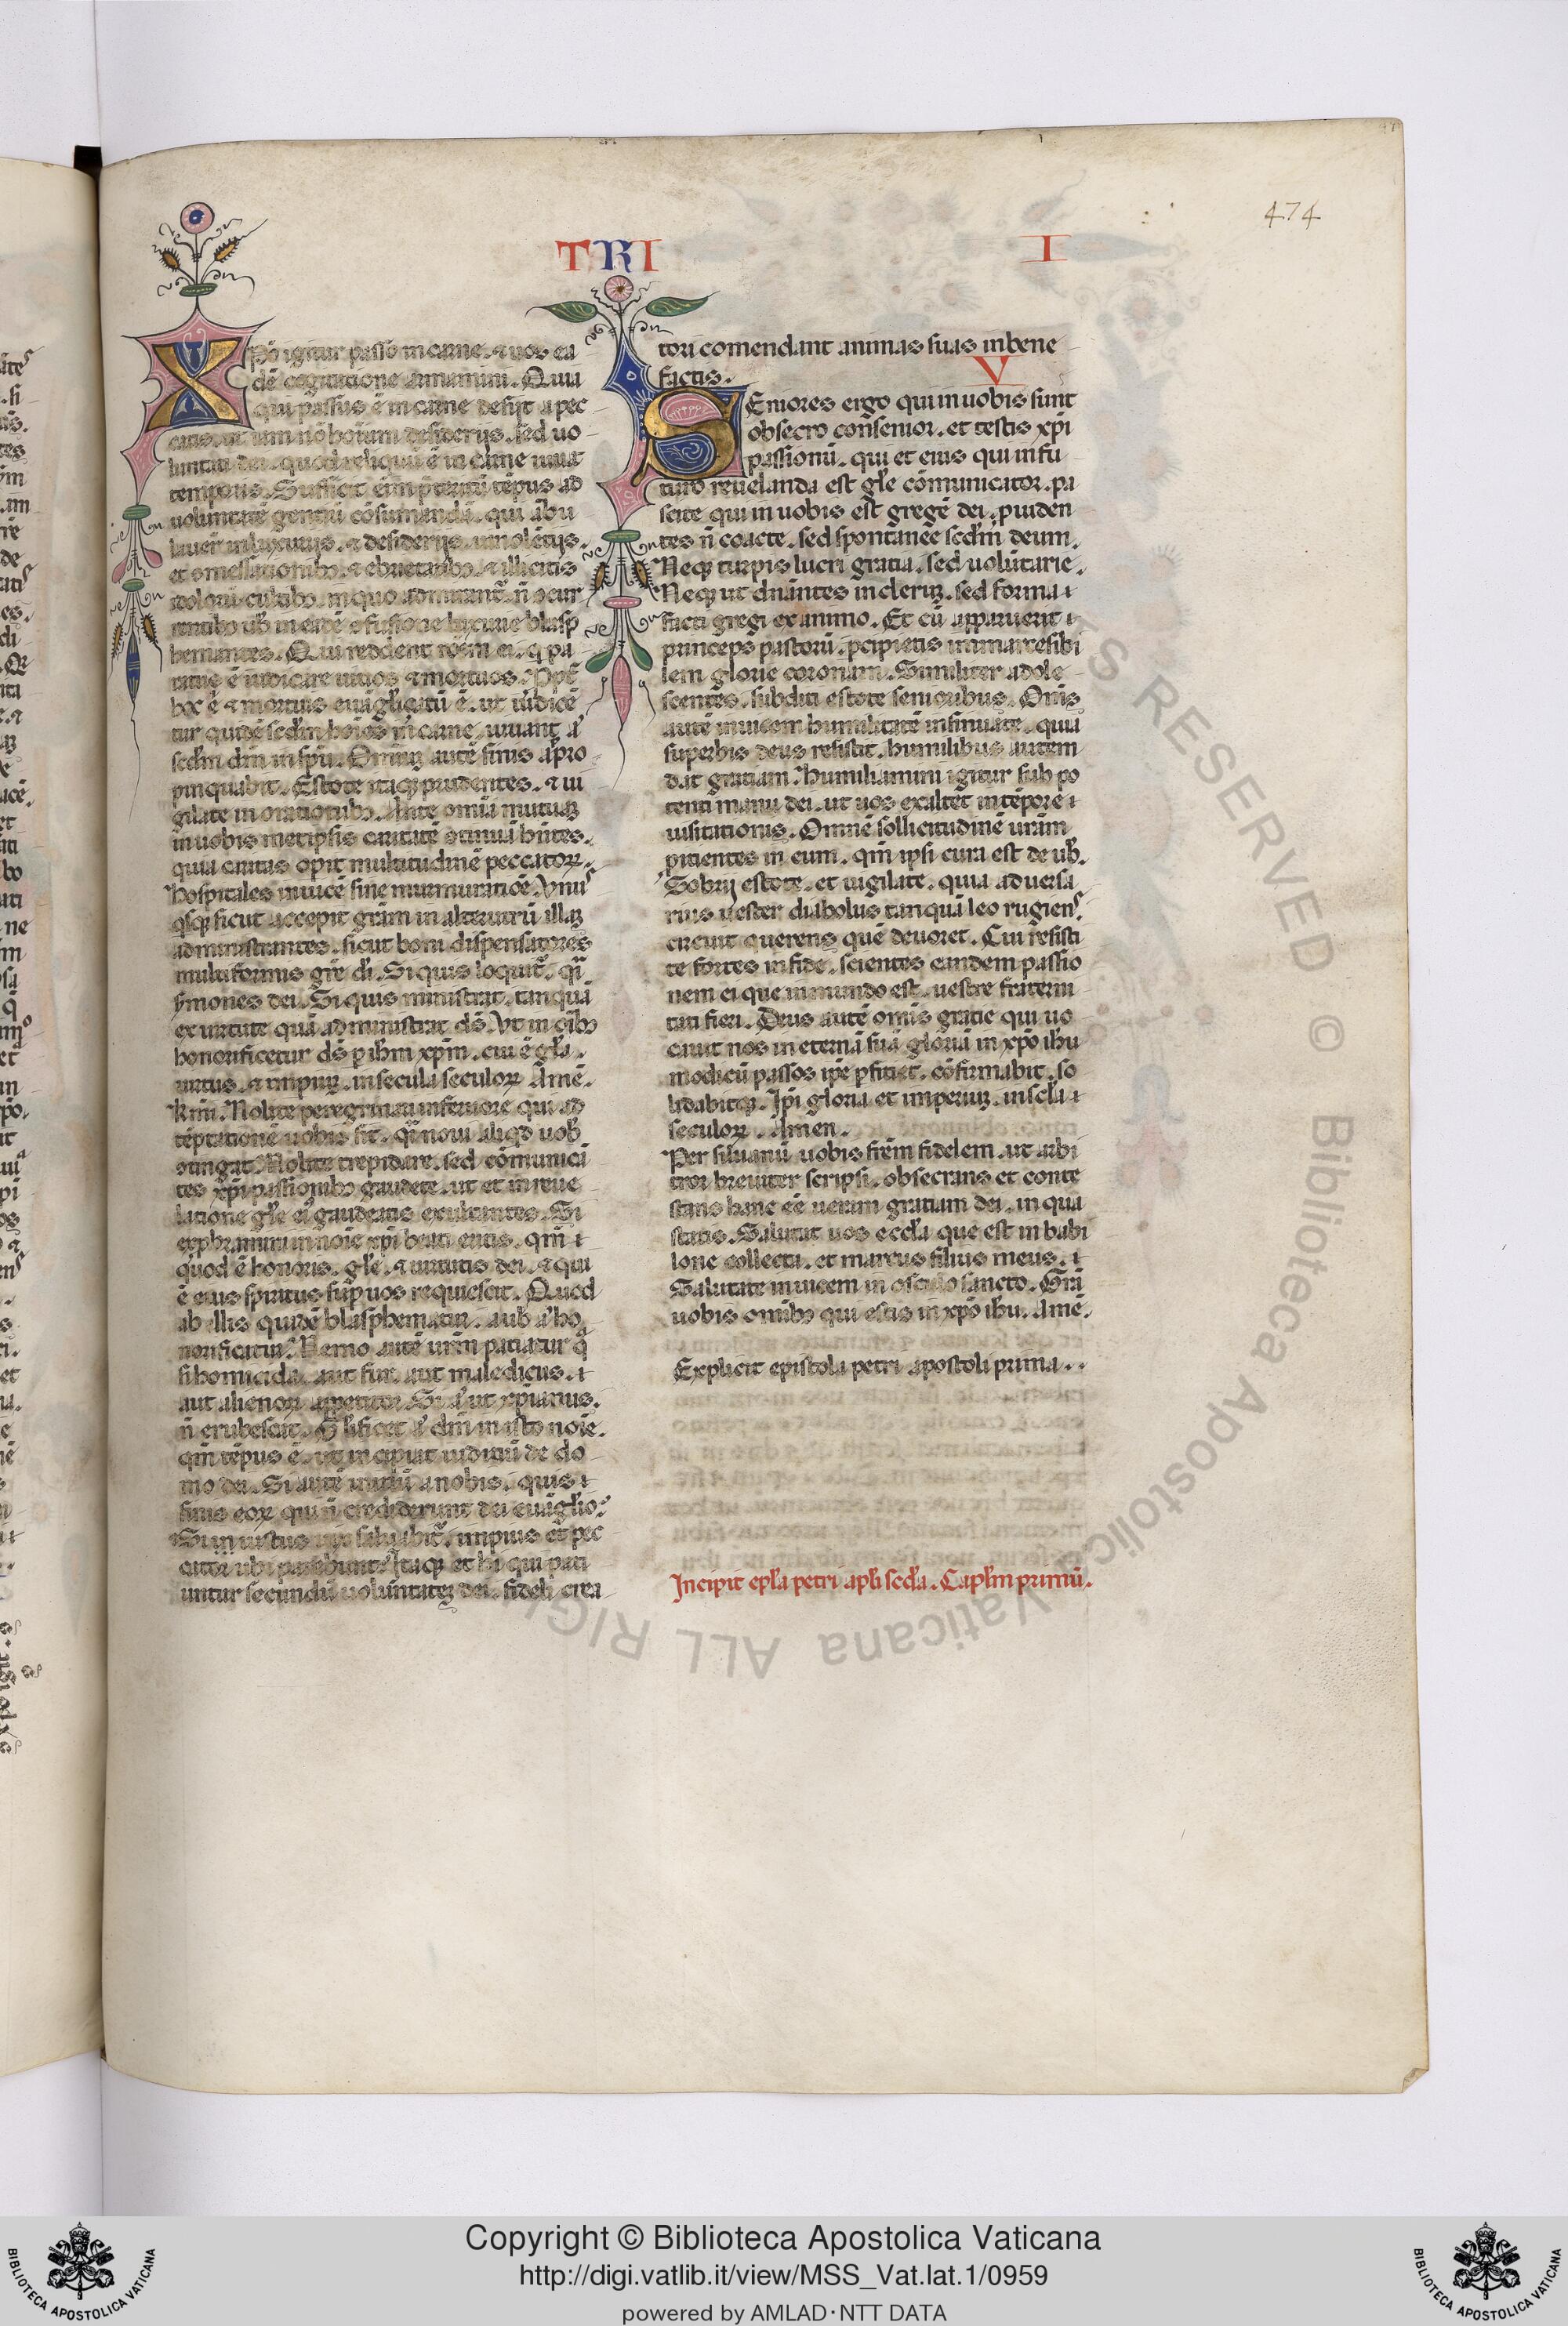 474
TRI
I
Xpō igitur passo in carne. ⁊ uos ea
dē cogitatione armamini. Quia
qui passus ē in carne desijt a pec
catis. ut iam nō hoīum desiderijs. sed uo
luntati dei. quod reliquū ē in carne uiuat
temporis. Sufficit eīm p̄teritū tēpus ad
uoluntatē gentiū cōsumandā. qui ābu
lauer̄ in luxurijs. ⁊ desiderijs. uinolētijs.
et comessationibꝰ. ⁊ ebrietatibꝰ. ⁊ illicitis
idolorū cultibꝰ. in quo admirant̄. n̄ ɔcur
rentibꝰ uob̄ in eādē ɔfusionē luxurie blasp
hemantes. Qui reddent rōnem ei. q̇ pa
ratus ē iudicare uiuos ⁊ mortuos. Ppt̄
hoc ē ⁊ mortuis euāgliȝatū ē. ut iudicē
tur quidē secd̄m hoīes in carne. uiuant a͛
secd̄m dm̄ in spū. Omniuȝ autē finis ap̄ro
pinquabit. Estote itaqȝ prudentes. ⁊ ui
gilate in orationibꝰ. Ante omīa mutuaȝ
in uobis metipsis caritatē ɔtinuā hn̄tes.
quia caritas opīt multitudinē peccatoꝝ.
hospitales inuicē sine murmuratiōe. Vnus
q̇sqȝ sicut accepit grām in alterutrū illaȝ
administrantes. sicut boni dispensatores
multiformis gr̄e dī. Si quis loquit̄. q̇̄
s̄mones dei. Si quis ministrat. tanquā
ex uirtute quā administrat ds̄. Vt in oībꝰ
honorificetur ds̄ p ihm̄ xpm̄. cui ē glā.
uirtus. ⁊ impiuȝ. in secula seculoꝝ Amē.
Kmī. Nolite peregrinari in feruore qui ad
tēptationē uobis fit. q̇̄ noui aliqd uob̄
ɔtingat. Nolite trepidare. sed cōmunicā
tes xp̄i passionibꝰ gaudete. ut et in reue
latione glē ei͛ gaudeatis exultantes. Si
exprobramini in noīe xp̄i beati eritis. qm̄ i
quod ē honoris. glē. ⁊ uirtutis dei. ⁊ qui
ē eius spiritus sup̄ uos requiescit. Quod
ab illis quidē blasphematur. a uob̄ a͛ ho
norificatur. Nemo autē urm̄ patiatur q̄
si homicida. aut fur. aut maledicus. i
aut alienoꝝ appetitor. Si a͛ ut xp̄ianus.
n̄ erubescat. Glīficet a͛ dm̄ in isto noīe.
qm̄ tēpus ē. ut incipiat iudiciū de do
mo dei. Si autē primū a nobis. quis i
finis eoꝝ qui n̄ crediderunt dei euāglio.
Si iustus uix saluabit̄. impius et pec
cator ubi parebunt. Itaqȝ et hi qui pati
untur secundū uoluntateȝ dei. fideli crea
tori comendant animas suas in bene
factis.
V
Seniores ergo qui in uobis sunt
obsecro consenior. et testis xp̄i
passionū. qui et eius qui in fu
turo reuelanda est glē cōmunicator. pa
scite qui in uobis est gregē dei. puiden
tes n̄ coacte. sed spontanee secd̄m deum.
Neqȝ turpis lucri gratia. sed uolūtarie.
Neqȝ ut dn̄antes in cleriȝ. sed forma i
facti gregi ex animo. Et cū apparuerit i
princeps pastorū. pcipietis inmarcesibi
lem glorie coronam. Similiter adole
scentes. subditi estote senioribus. Om̄s
autē inuicem humilitatē insinuate. quia
superbis deus resistit. humilibus autem
dat gratiam. Humiliamini igitur sub po
tenti manu dei. ut uos exaltet in tēpore i
uisitationis. Omnē sollicitudinē uram̄
piicientes in eum. qm̄ ipsi cura est de uob̄.
Sobrij estote. et uigilate. quia aduersa
rius uester diabolus tanquā leo rugiens.
circuit querens quē deuoret. Cui resisti
te fortes in fide. scientes eandem passio
nem ei que in mundo est. uestre fraterni
tati fieri. Deus autē omīs gratie qui uo
cauit nos in eternā suā gloriā in xpō ihu
modicū passos ipē pficiet. cōfirmabit. so
lidabitqȝ. Ipī gloria et imperiuȝ. in scl̄a i
seculoꝝ. Amen.
Per siluanū uobis frēm fidelem. ut arbi
tror breuiter scripsi. obsecrans et conte
stans hanc eē ueram gratiam dei. in qua
statis. Salutat uos eccl̄a que est in babi
lone collecta. et marcus filius meus. i
Salutate inuicem in osculo sancto. Grā
uobis omībꝰ qui estis in xpō ihu. Amē.
Explicit epistola petri apostoli prima.
Incipit epl̄a petri apl̄i secd̄a. Capl̄m primū.
ALL RIGHTS RESERVED © Biblioteca Apostolica Vaticana
Copyright © Biblioteca Apostolica Vaticana
http://digi.vatlib.it/view/MSS_Vat.lat.1/0959
powered by AMLAD·NTT DATA
BIBLIOTECA APOSTOLICA VATICANA
BIBLIOTECA APOSTOLICA VATICANA